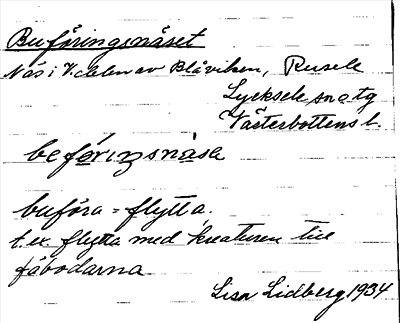 Buföringsnäset
Näs i V. delen av Blåviken, Rusele
Lycksele sn o tg
Västerbottens l.
beförinznäse
buföra = flytta.
t. ex. flytta med kreaturen till
fäbodarna
Lisa Lidberg 1934